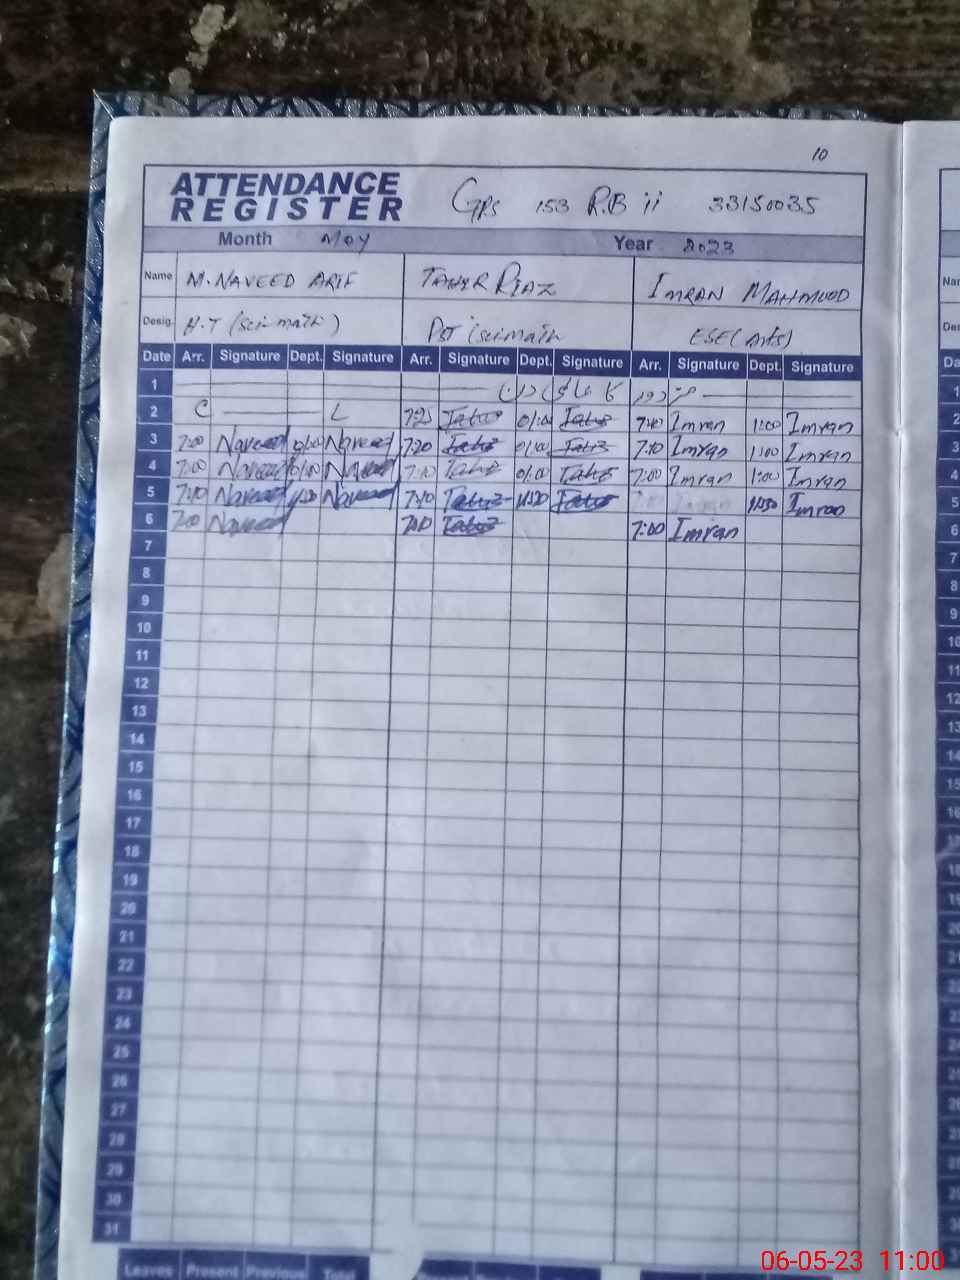 10
ATTENDANCE
REGISTER GPS 153 R.B ii 33150035
Month May Year 2023
Name M.NAVEED ARIF TAHIR RIAZ IMRAN MAHMOOD
Desig. H.T (Sci-math) PST (sci-math ESE (Arts)
Date Arr. Signature Dept. Signature Arr. Signature Dept. Signature Arr. Signature Dept. Signature
1 مزدوروں کا عالمی دن
2 C L 7:25 Tahir 01:00 Tahir 7:40 Imran 1:00 Imran
3 7:00 Naveed 01:00 Naveed 7:20 Tahir 01:00 Tahir 7:10 Imran 1:00 Imran
4 7:00 Naveed 01:00 Naveed 7:10 Tahir 01:00 Tahir 7:00 Imran 1:00 Imran
5 7:40 Naveed 11:30 Naveed 7:40 Tahir 11:30 Tahir 11:30 Imran
6 7:00 Naveed 7:10 Tahir 7:00 Imran
7
8
9
10
11
12
13
14
15
16
17
18
19
20
21
22
23
24
25
26
27
28
29
30
31
Leaves Present Previous Total
06-05-23 11:00